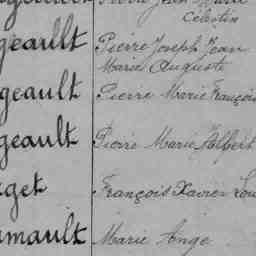 Celestin
geaullt Pierre Joseph Jean
Marie Auguste
geault Pierre Marie François
geault Pierre Marie Albert
get François Xavier Lou
mault Marie Ange